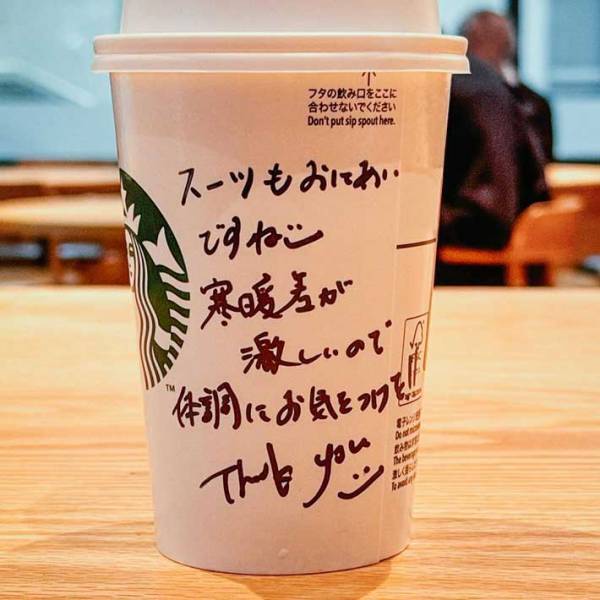 フタの飲み口をここに
合わせないでください
Don't put sip spout here.
スーツもおにあい
ですね
寒暖差が
激しいので
体調にお気をつけて
Thank you
TM